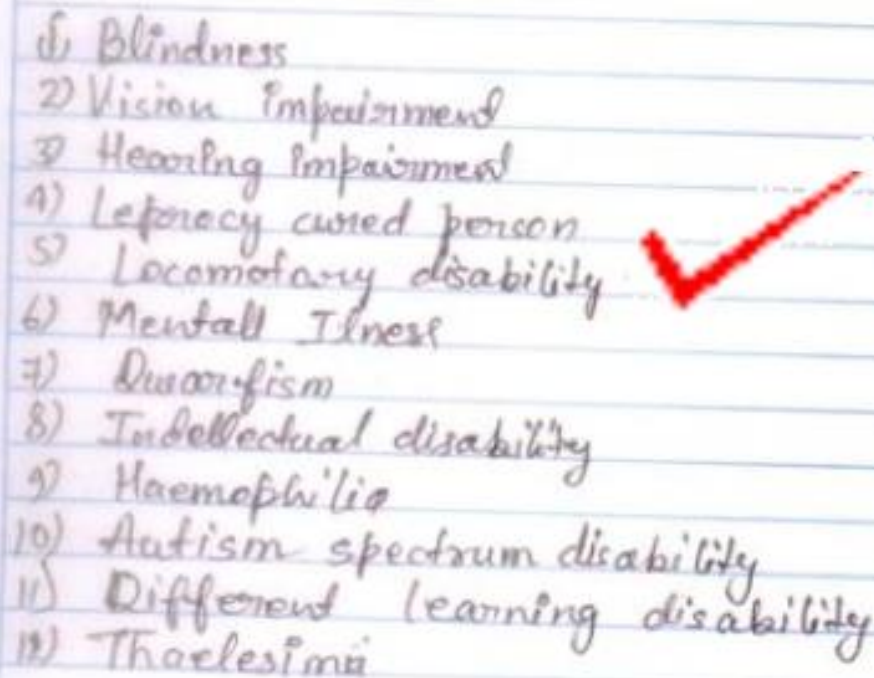 1) Blindness
2) Vision impairment
3) Hearing impairment
4) Leprecy cured person
5) Locomotary disability
6) Mentall Ilness
7) Dwarfism
8) Intellectual disability
9) Haemophilia
10) Autism spectrum disability
11) Different learning disability
12) Thaelesima